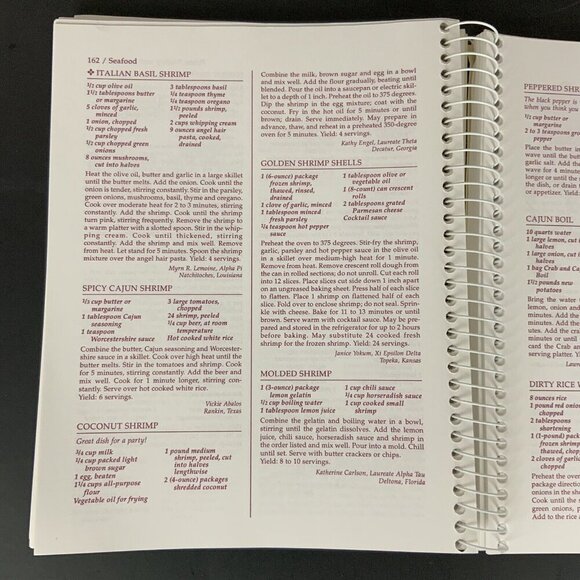 162 / Seafood
❖ ITALIAN BASIL SHRIMP
1/2 cup olive oil
1 1/2 tablespoons butter
or margarine
5 cloves of garlic,
minced
1 onion, chopped
1/2 cup chopped fresh
parsley
1/2 cup chopped green
onions
8 ounces mushrooms,
cut into halves
3 tablespoons basil
1/4 teaspoon thyme
1/4 teaspoon oregano
1 1/2 pounds shrimp,
peeled
2 cups whipping cream
9 ounces angel hair
pasta, cooked,
drained
Heat the olive oil, butter and garlic in a large skillet
until the butter melts. Add the onion. Cook until the
onion is tender, stirring constantly. Stir in the parsley,
green onions, mushrooms, basil, thyme and oregano.
Cook over moderate heat for 2 to 3 minutes, stirring
constantly. Add the shrimp. Cook until the shrimp
turn pink, stirring frequently. Remove the shrimp to
a warm platter with a slotted spoon. Stir in the whip-
ping cream. Cook until thickened, stirring
constantly. Add the shrimp and mix well. Remove
from heat. Let stand for 5 minutes. Spoon the shrimp
mixture over the angel hair pasta. Yield: 4 servings.
Myrn R. Lemoine, Alpha Pi
Natchitoches, Louisiana
SPICY CAJUN SHRIMP
1/3 cup butter or
margarine
1 tablespoon Cajun
seasoning
1 teaspoon
Worcestershire sauce
3 large tomatoes,
chopped
24 shrimp, peeled
1/4 cup beer, at room
temperature
Hot cooked white rice
Combine the butter, Cajun seasoning and Worcester-
shire sauce in a skillet. Cook over high heat until the
butter melts. Stir in the tomatoes and shrimp. Cook
for 5 minutes, stirring constantly. Add the beer and
mix well. Cook for 1 minute longer, stirring con-
stantly. Serve over hot cooked white rice.
Yield: 6 servings.
Vickie Abalos
Rankin, Texas
COCONUT SHRIMP
Great dish for a party!
3/4 cup milk
1/4 cup packed light
brown sugar
1 egg, beaten
1 1/4 cups all-purpose
flour
Vegetable oil for frying
1 pound medium
shrimp, peeled, cut
into halves
lengthwise
2 (4-ounce) packages
shredded coconut
Combine the milk, brown sugar and egg in a bowl
and mix well. Add the flour gradually, beating until
blended. Pour the oil into a saucepan or electric skil-
let to a depth of 1 inch. Preheat the oil to 375 degrees.
Dip the shrimp in the egg mixture; coat with the
coconut. Fry in the hot oil for 5 minutes or until
brown; drain. Serve immediately. May prepare in
advance, thaw, and reheat in a preheated 350-degree
oven for 5 minutes. Yield: 4 servings.
Kathy Engel, Laureate Theta
Decatur, Georgia
GOLDEN SHRIMP SHELLS
1 (6-ounce) package
frozen shrimp,
thawed, rinsed,
drained
1 clove of garlic, minced
1 tablespoon minced
fresh parsley
1/4 teaspoon hot pepper
sauce
1 tablespoon olive or
vegetable oil
1 (8-count) can crescent
rolls
2 tablespoons grated
Parmesan cheese
Cocktail sauce
Preheat the oven to 375 degrees. Stir-fry the shrimp,
garlic, parsley and hot pepper sauce in the olive oil
in a skillet over medium-high heat for 1 minute.
Remove from heat. Remove crescent roll dough from
the can in rolled sections; do not unroll. Cut each roll
into 12 slices. Place slices cut side down 1 inch apart
on an ungreased baking sheet. Press half of each slice
to flatten. Place 1 shrimp on flattened half of each
slice. Fold over to enclose shrimp; do not seal. Sprin-
kle with cheese. Bake for 11 to 13 minutes or until
brown. Serve warm with cocktail sauce. May be pre-
pared and stored in the refrigerator for up to 2 hours
before baking. May substitute 24 cooked fresh
shrimp for the frozen shrimp. Yield: 24 servings.
Janice Yokum, Xi Epsilon Delta
Topeka, Kansas
MOLDED SHRIMP
1 (3-ounce) package
lemon gelatin
1/2 cup boiling water
1 tablespoon lemon juice
1 cup chili sauce
1/4 cup horseradish sauce
1 cup cooked small
shrimp
Combine the gelatin and boiling water in a bowl,
stirring until the gelatin dissolves. Add the lemon
juice, chili sauce, horseradish sauce and shrimp in
the order listed and mix well. Pour into a mold. Chill
until set. Serve with butter crackers or toast.
Yield: 8 to 10 servings.
Katherine Carlson, Laureate Alpha Tau
Deltona, Florida
PEPPERED SHR
The black pepper is
when you think you
1/2 cup butter or
margarine
2 to 3 teaspoons
pepper
Place the butter in
wave until the butter
garlic salt. Add the
wave for 4 minutes
longer or until the
the dish, or drain
or appetizer. Yield:
CAJUN BOIL
10 quarts water
1 large lemon, cut
halves
1 large onion, cut
halves
1 bag Crab and
Boil
1 1/2 pounds new
potatoes
Bring the water
lemon, onion and
in the shrimp.
minutes or until
card the Crab and
serving platter. Y
Laure
DIRTY RICE W
8 ounces rice
1 pound red onion
chopped
2 tablespoons
shortening
1 (1-pound) pack
frozen shrimp
thawed, chopp
2 cloves of garlic
chopped
Preheat the oven
package direction
onions in the sho
Cook until the s
frying pan; cover
Add to the rice a